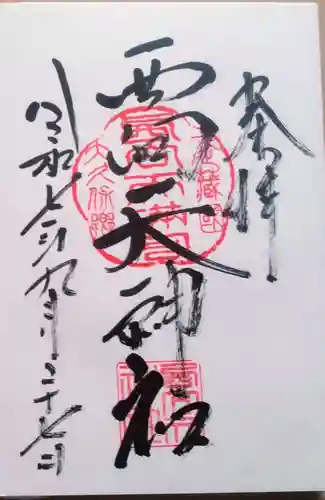 奉拝
西向天神社
令和七年九月二十七日
武蔵國